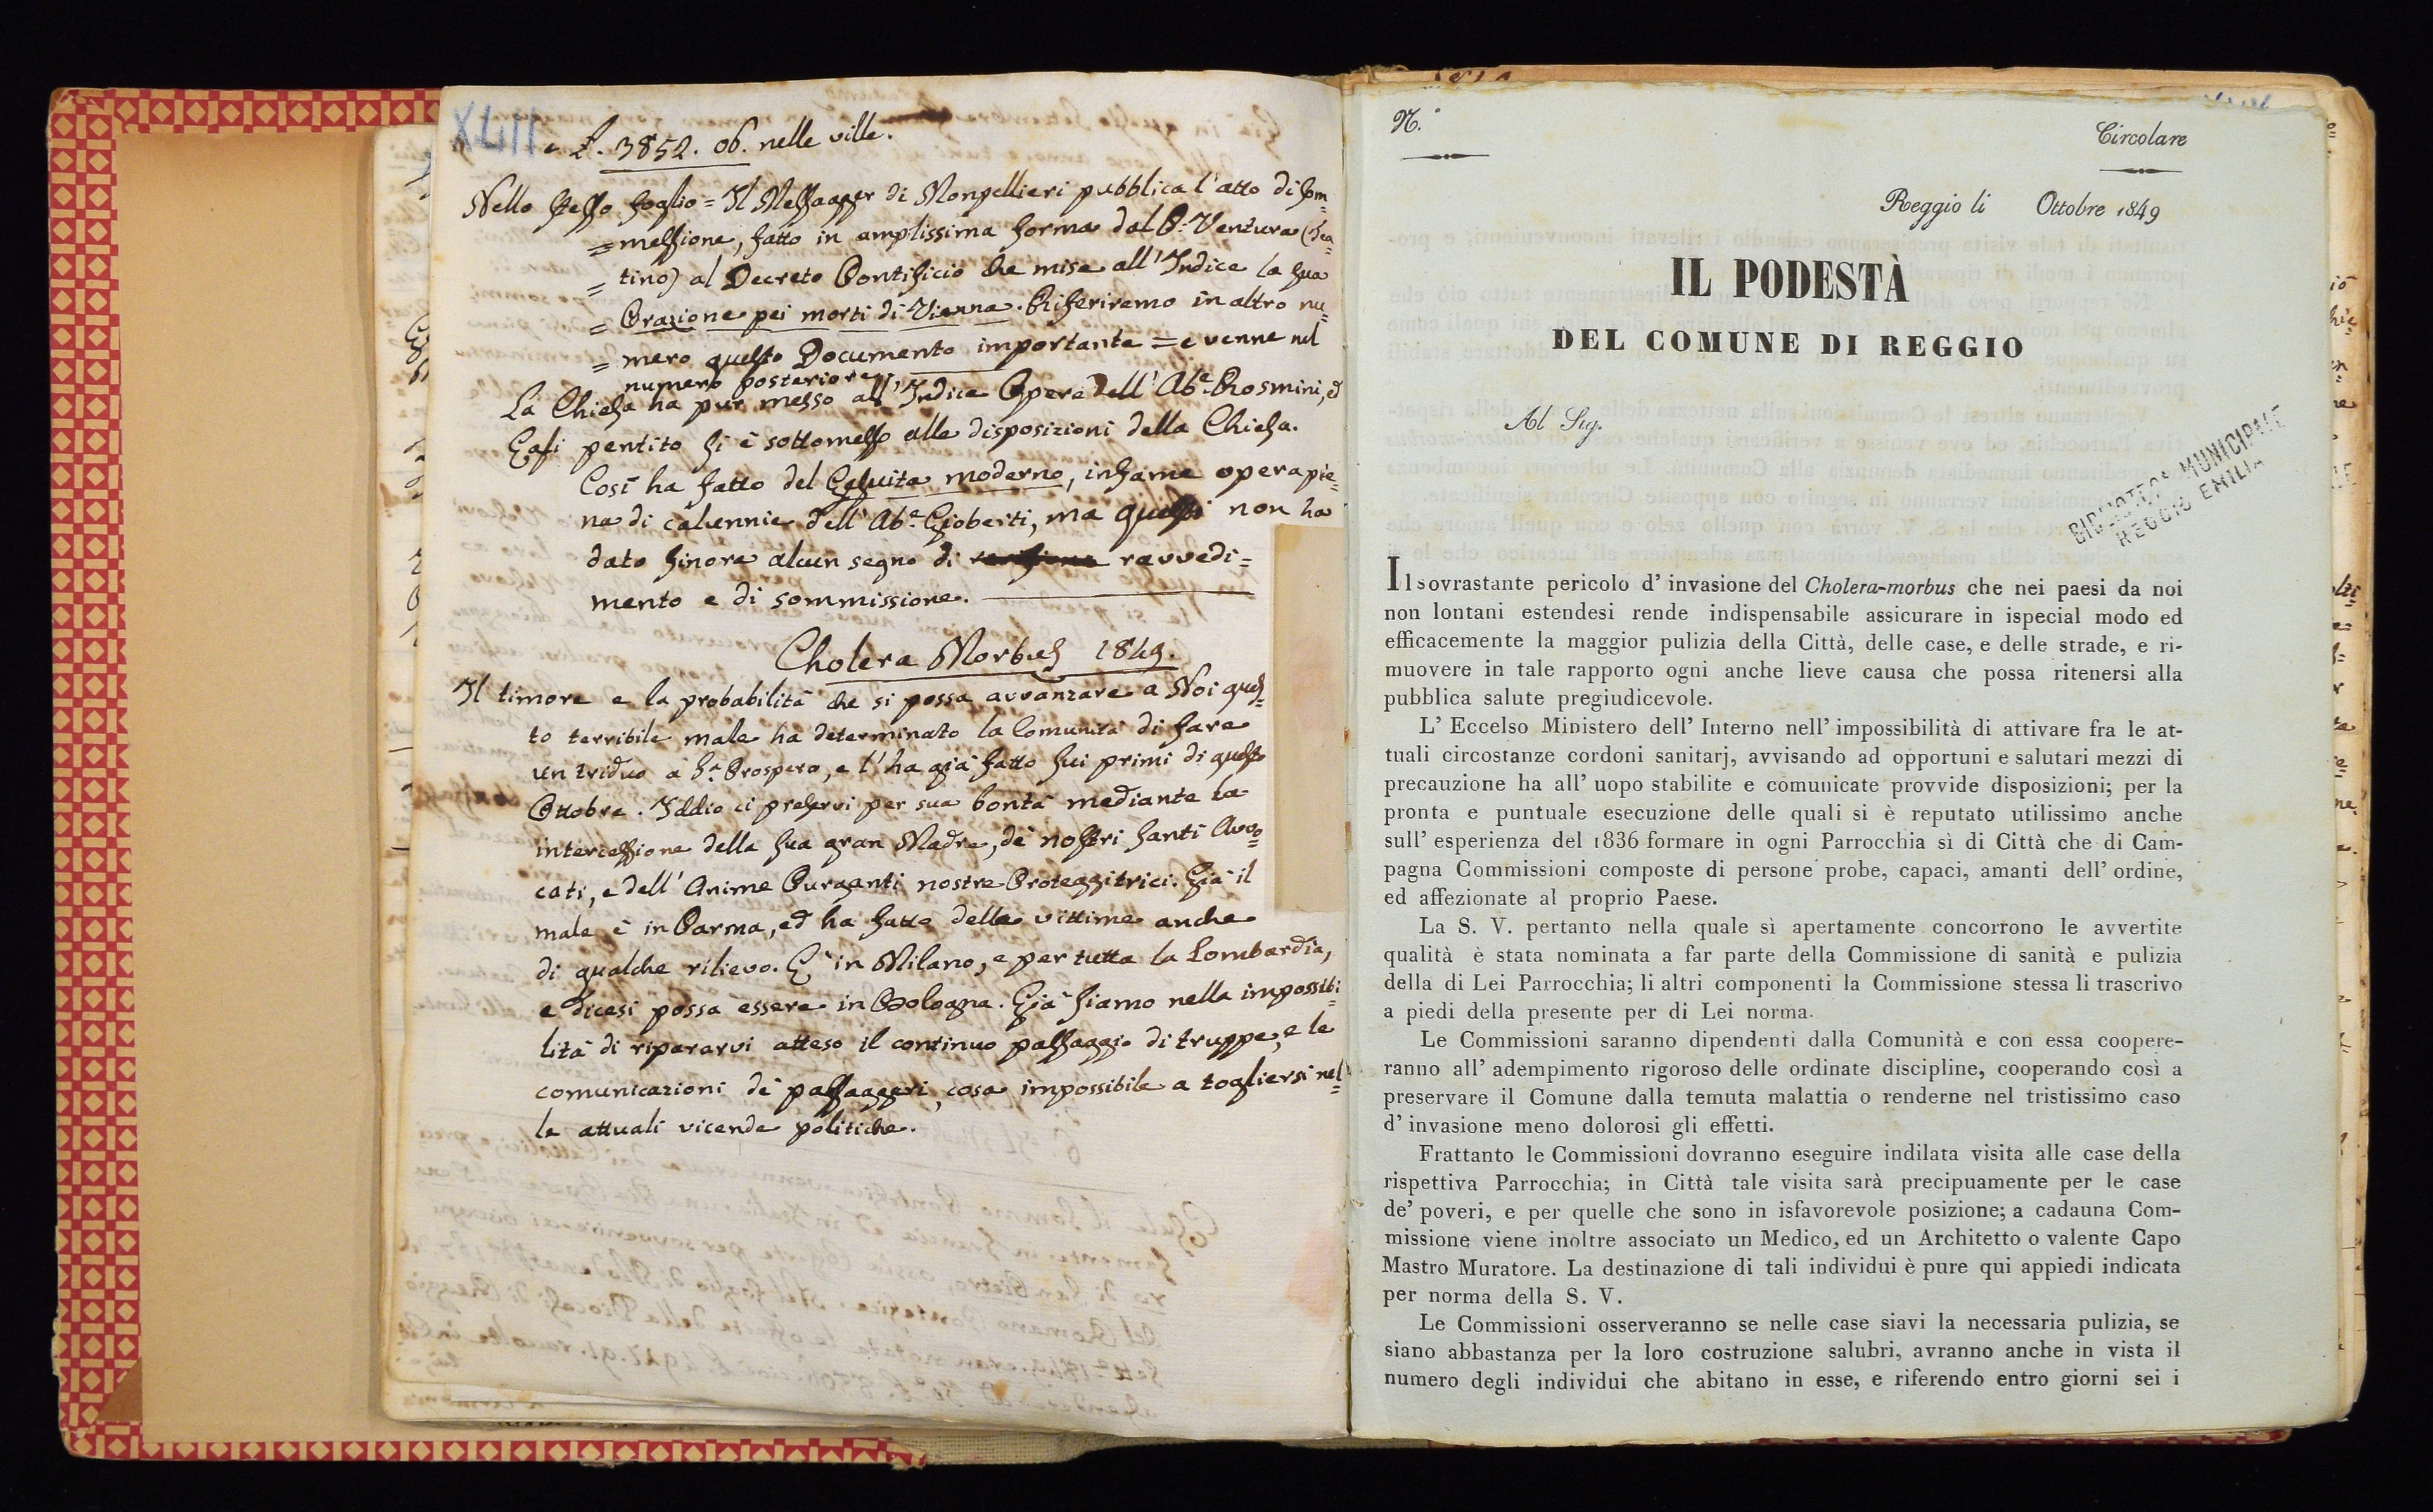 XLIII
e £. 3852. 06. nelle ville.
Nello stesso foglio = Il Messagger di Monpellieri pubblica l'atto di som=
= messione, fatto in amplissima forma dal P. Ventura (Tea=
= tino) al Decreto Pontificio che mise all'Indice la sua
= Orazione pei morti di Vienna. Riferiremo in altro nu=
= mero questo Documento importante = e venne nel
numero posteriore.
La Chiesa ha pur messo all'Indice Opere dell'Ab.e Rosmini, ed
Egli pentito si è sottomesso alle disposizioni della Chiesa.
Così ha fatto del Gesuita moderno, infame opera pie=
na di calunnie dell'Ab.e Gioberti, ma questi non ha
dato finora alcun segno di ravvedi=
mento e di sommissione.
Cholera Morbus 1849.
Il timore e la probabilità che si possa avvanzare a Noi ques=
to terribile male ha determinato la Comunità di fare
un triduo a S. Prospero, e l'ha già fatto sui primi di questo
Ottobre. Iddio ci preservi per sua bontà mediante la
intercessione della sua gran Madre, de' nostri Santi Avvo=
cati, e dell'Anime Purganti nostre Proteggitrici. Già il
male è in Parma, ed ha fatto delle vittime anche
di qualche rilievo. E' in Milano, e per tutta la Lombardia,
e dicesi possa essere in Bologna. Già siamo nella impossibi=
lità di ripararvi atteso il continuo passaggio di truppe, e le
comunicazioni de' passaggeri, cosa impossibile a togliersi nel=
le attuali vicende politiche.
N.°
Circolare
Reggio li Ottobre 1849
IL PODESTÀ
DEL COMUNE DI REGGIO
Al Sig.
BIBLIOTECA MUNICIPALE
REGGIO EMILIA
Il sovrastante pericolo d' invasione del Cholera-morbus che nei paesi da noi
non lontani estendesi rende indispensabile assicurare in ispecial modo ed
efficacemente la maggior pulizia della Città, delle case, e delle strade, e ri-
muovere in tale rapporto ogni anche lieve causa che possa ritenersi alla
pubblica salute pregiudicevole.
L' Eccelso Ministero dell' Interno nell' impossibilità di attivare fra le at-
tuali circostanze cordoni sanitarj, avvisando ad opportuni e salutari mezzi di
precauzione ha all' uopo stabilite e comunicate provvide disposizioni; per la
pronta e puntuale esecuzione delle quali si è reputato utilissimo anche
sull' esperienza del 1836 formare in ogni Parrocchia sì di Città che di Cam-
pagna Commissioni composte di persone probe, capaci, amanti dell' ordine,
ed affezionate al proprio Paese.
La S. V. pertanto nella quale sì apertamente concorrono le avvertite
qualità è stata nominata a far parte della Commissione di sanità e pulizia
della di Lei Parrocchia; li altri componenti la Commissione stessa li trascrivo
a piedi della presente per di Lei norma.
Le Commissioni saranno dipendenti dalla Comunità e con essa coopere-
ranno all' adempimento rigoroso delle ordinate discipline, cooperando così a
preservare il Comune dalla temuta malattia o renderne nel tristissimo caso
d' invasione meno dolorosi gli effetti.
Frattanto le Commissioni dovranno eseguire indilata visita alle case della
rispettiva Parrocchia; in Città tale visita sarà precipuamente per le case
de' poveri, e per quelle che sono in isfavorevole posizione; a cadauna Com-
missione viene inoltre associato un Medico, ed un Architetto o valente Capo
Mastro Muratore. La destinazione di tali individui è pure qui appiedi indicata
per norma della S. V.
Le Commissioni osserveranno se nelle case siavi la necessaria pulizia, se
siano abbastanza per la loro costruzione salubri, avranno anche in vista il
numero degli individui che abitano in esse, e riferendo entro giorni sei i